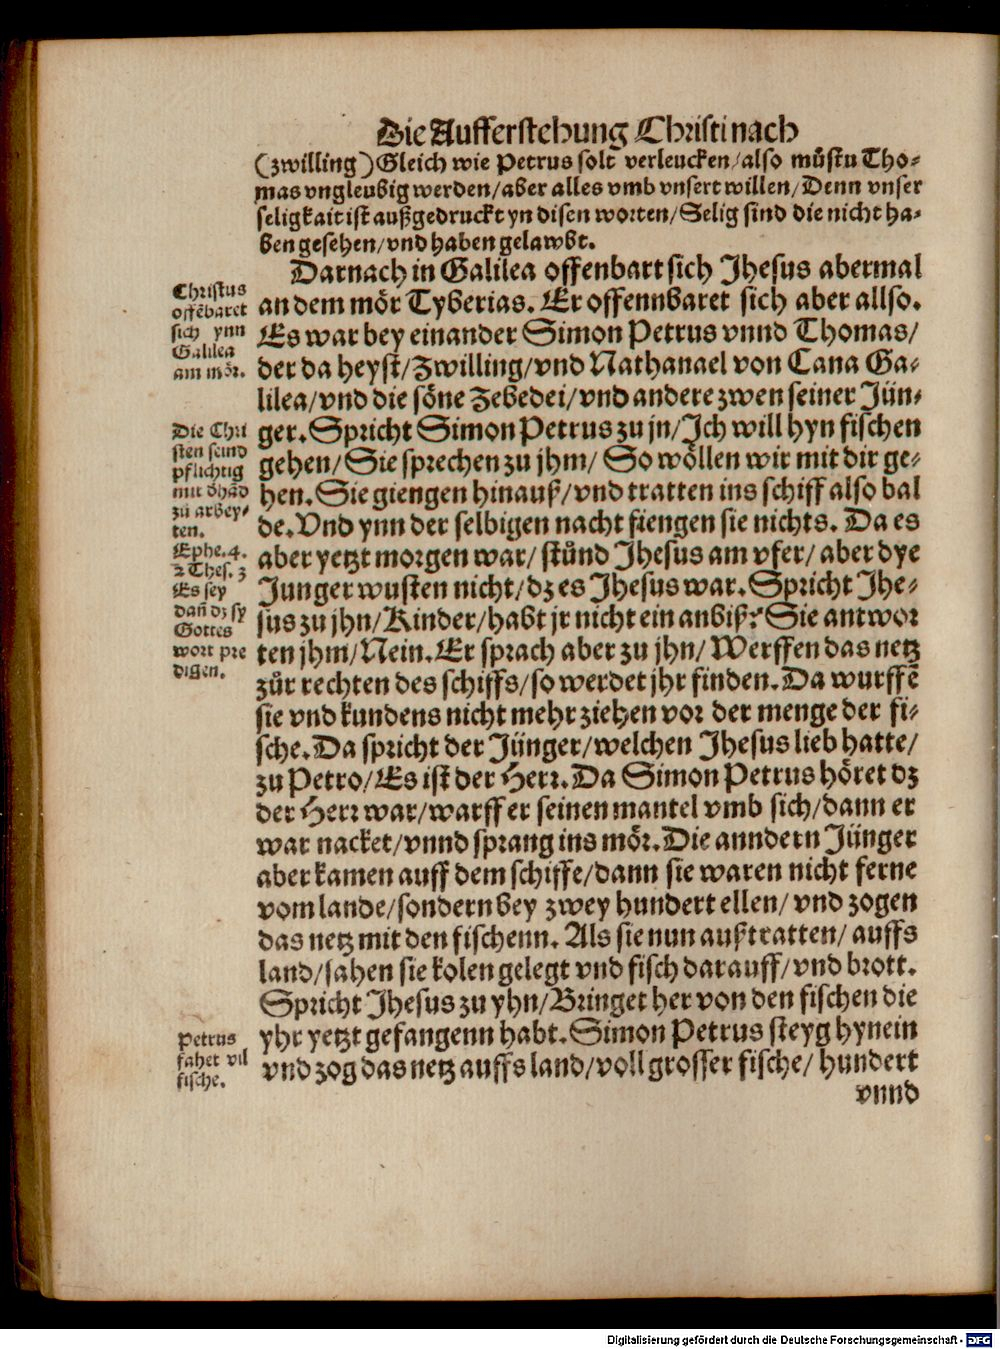 Die Aufferstehung Christi nach
(zwilling) Gleich wie Petrus solt verleucken/also můstu Tho⸗
mas vngleubig werden/aber alles vmb vnsert willen/Denn vnser
seligkait ist außgedruckt yn disen worten/Selig sind die nicht ha⸗
ben gesehen/vnd haben gelawbt.
Darnach in Galilea offenbart sich Jhesus abermal
an dem mör Tyberias. Er offennbaret sich aber allso.
Es war bey einander Simon Petrus vnnd Thomas/
der da heyst/Zwilling/vnd Nathanael von Cana Ga⸗
lilea/vnd die söne Zebedei/vnd andere zwen seiner Jün⸗
ger. Spricht Simon Petrus zu jn/Jch will hyn fischen
gehen/Sie sprechen zu jhm/ So wöllen wir mit dir ge⸗
hen. Sie giengen hinauß/vnd tratten ins schiff also bal
de. Vnd ynn der selbigen nacht fiengen sie nichts. Da es
aber yetzt morgen war/ stůnd Jhesus am vfer/ aber dye
Junger wusten nicht/dz es Jhesus war. Spricht Jhe⸗
sus zu jhn/Kinder/habt jr nicht ein anbiß? Sie antwor
ten jhm/Nein. Er sprach aber zu jhn/ Werffen das netz
zůr rechten des schiffs/so werdet jhr finden. Da wurffē
sie vnd kundens nicht mehr ziehen vor der menge der fi⸗
sche. Da spricht der Jünger/welchen Jhesus lieb hatte/
zu Petro/Es ist der Herr. Da Simon Petrus höret dz
der Herr war/warff er seinen mantel vmb sich/dann er
war nacket/vnnd sprang ins mör. Die anndern Jünger
aber kamen auff dem schiffe/dann sie waren nicht ferne
vom lande/sondern bey zwey hundert ellen/ vnd zogen
das netz mit den fischenn. Als sie nun außtratten/ auffs
land/sahen sie kolen gelegt vnd fisch darauff/vnd brott.
Spricht Jhesus zu yhn/Bringet her von den fischen die
yhr yetzt gefangenn habt. Simon Petrus steyg hynein
vnd zog das netz auffs land/voll grosser fische/ hundert
vnnd
Christus
offēbaret
sich ynn
Galilea
am mör.
Die Chri
sten seind
pflichtig
mit d̄ hād
zů arbey⸗
ten.
Ephe. 4.
2 Thes. 3
Es sey
dañ dz sy
Gottes
wort pre
digen.
Petrus
fahet vil
fische.
Digitalisierung gefördert durch die Deutsche Forschungsgemeinschaft - DFG